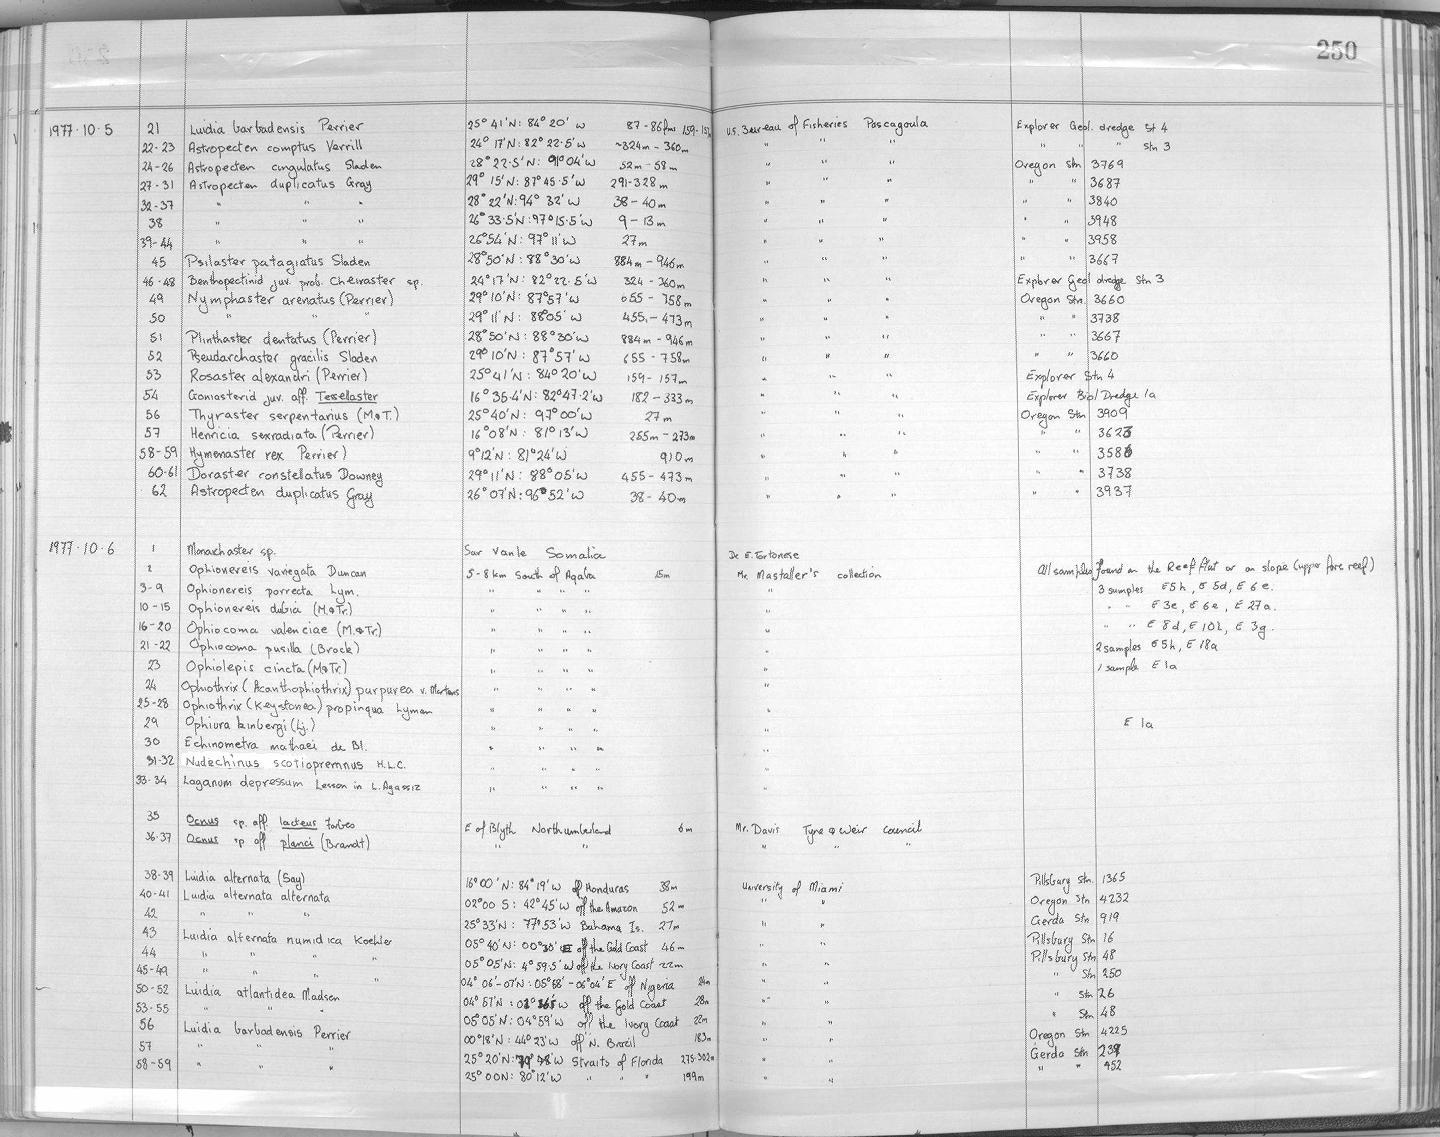 250
1977·10·5 21 Luidia barbadensis Perrier 25° 41'N: 84° 20' W 87-86fms 159-157m U.S. Bureau of Fisheries Pascagoula Explorer Geol. dredge St 4
22-23 Astropecten comptus Verrill 24° 17'N: 82° 22·5'W ~324m - 360m " " " " " " Stn 3
24-26 Astropecten cingulatus Sladen 28° 22·5'N: 91° 04'W 52m - 58m " " " Oregon Stn 3769
27-31 Astropecten duplicatus Gray 29° 15'N: 87° 45·5'W 291-328m " " " " " 3687
32-37 " " " 28° 22'N: 94° 32' W 38-40m " " " " " 3840
38 " " " 26° 33·5'N: 97° 15·5'W 9-13m " " " " " 3948
39-44 " " " 26° 54'N: 97° 11'W 27m " " " " " 3958
45 Psilaster patagiatus Sladen 28° 50'N: 88° 30'W 884m-946m " " " " " 3667
46-48 Benthopectinid juv. prob. Cheiraster sp. 24° 17'N: 82° 22·5'W 324-360m " " " Explorer Geol dredge Stn 3
49 Nymphaster arenatus (Perrier) 29° 10'N: 87° 57'W 655-758m " " " Oregon Stn. 3660
50 " " " 29° 11'N: 88° 05'W 455-473m " " " " " 3738
51 Plinthaster dentatus (Perrier) 28° 50'N: 88° 30'W 884m-946m " " " " " 3667
52 Pseudarchaster gracilis Sladen 29° 10'N: 87° 57'W 655-758m " " " " " 3660
53 Rosaster alexandri (Perrier) 25° 41'N: 84° 20'W 159-157m " " " Explorer Stn 4
54 Goniasterid juv. aff. Tessellaster 16° 35·4'N: 82° 47·2'W 182-333m " " " Explorer Biol Dredge 1a
56 Thyraster serpentarius (M.&T.) 25° 40'N: 97° 00'W 27m " " " Oregon Stn 3909
57 Henricia sexradiata (Perrier) 16° 08'N: 81° 13'W 255m-273m " " " " " 3623
58-59 Hymenaster rex Perrier) 9° 12'N: 81° 24'W 910m " " " " " 3586
60-61 Doraster constellatus Downey 29° 11'N: 88° 05'W 455-473m " " " " " 3738
62 Astropecten duplicatus Gray 26° 07'N: 96° 52'W 38-40m " " " " " 3937
1977·10·6 1 Monarchaster sp. Sar Vanle Somalia De E. Tortonese
2 Ophionereis variegata Duncan 5-8km South of Aqaba 15m Mr. Mastaller's collection All samples found on the Reef flat or on slope (upper fore reef)
3-9 Ophionereis porrecta Lym. " " " " " 3 samples E5h, E 5d, E 6e.
10-15 Ophionereis dubia (M.&Tr.) " " " " " " " E 3e, E 6e, E 27a.
16-20 Ophiocoma valenciae (M.&Tr.) " " " " " " " E 8d, E 10h, E 3g.
21-22 Ophiocoma pusilla (Brock) " " " " " 2 samples E5h, E 18a
23 Ophiolepis cincta (M&Tr.) " " " " " 1 sample E 1a
24 Ophiothrix (Acanthophiothrix) purpurea v. Martens " " " " "
25-28 Ophiothrix (Keystonea) propinqua Lyman " " " " "
29 Ophiura kinbergi (Lj.) " " " " " E 1a
30 Echinometra mathaei de Bl. " " " " "
31-32 Nudechinus scotiopremnus H.L.C. " " " " "
33-34 Laganum depressum Lesson in L. Agassiz " " " " "
35 Ocnus sp. aff. lacteus Forbes E of Blyth Northumberland 6m Mr. Davis Tyne & Weir Council
36-37 Ocnus sp aff planci (Brandt) " " " " "
38-39 Luidia alternata (Say) 16° 00' N: 84° 19'W off Honduras 38m University of Miami Pillsbury Stn. 1365
40-41 Luidia alternata alternata 02° 00 S: 42° 45'W off the Amazon 52m " " Oregon Stn 4232
42 " " " 25° 33'N: 77° 53'W Bahama Is. 27m " " Gerda Stn 919
43 Luidia alternata numidica Koehler 05° 40'N: 00° 30' E off the Gold Coast 46m " " Pillsbury Stn 16
44 " " " " 05° 05'N: 4° 59·5'W off the Ivory Coast 22m " " Pillsbury Stn 48
45-49 " " " " 04° 06'-07'N: 05° 58'-06° 04' E off Nigeria 24m " " " Stn 250
50-52 Luidia atlantidea Madsen 04° 57'N: W off the Gold Coast 28m " " " Stn 26
53-55 " " " 05° 05'N: 04° 59'W off the Ivory Coast 22m " " " Stn 48
56 Luidia barbadensis Perrier 00° 18'N: 44° 23'W off N. Brazil 183m " " Oregon Stn 4225
57 " " " 25° 20'N: W Straits of Florida 275-302m " " Gerda Stn
58-59 " " " 25° 00N: 80° 12'W " " " 199m " " " " 452